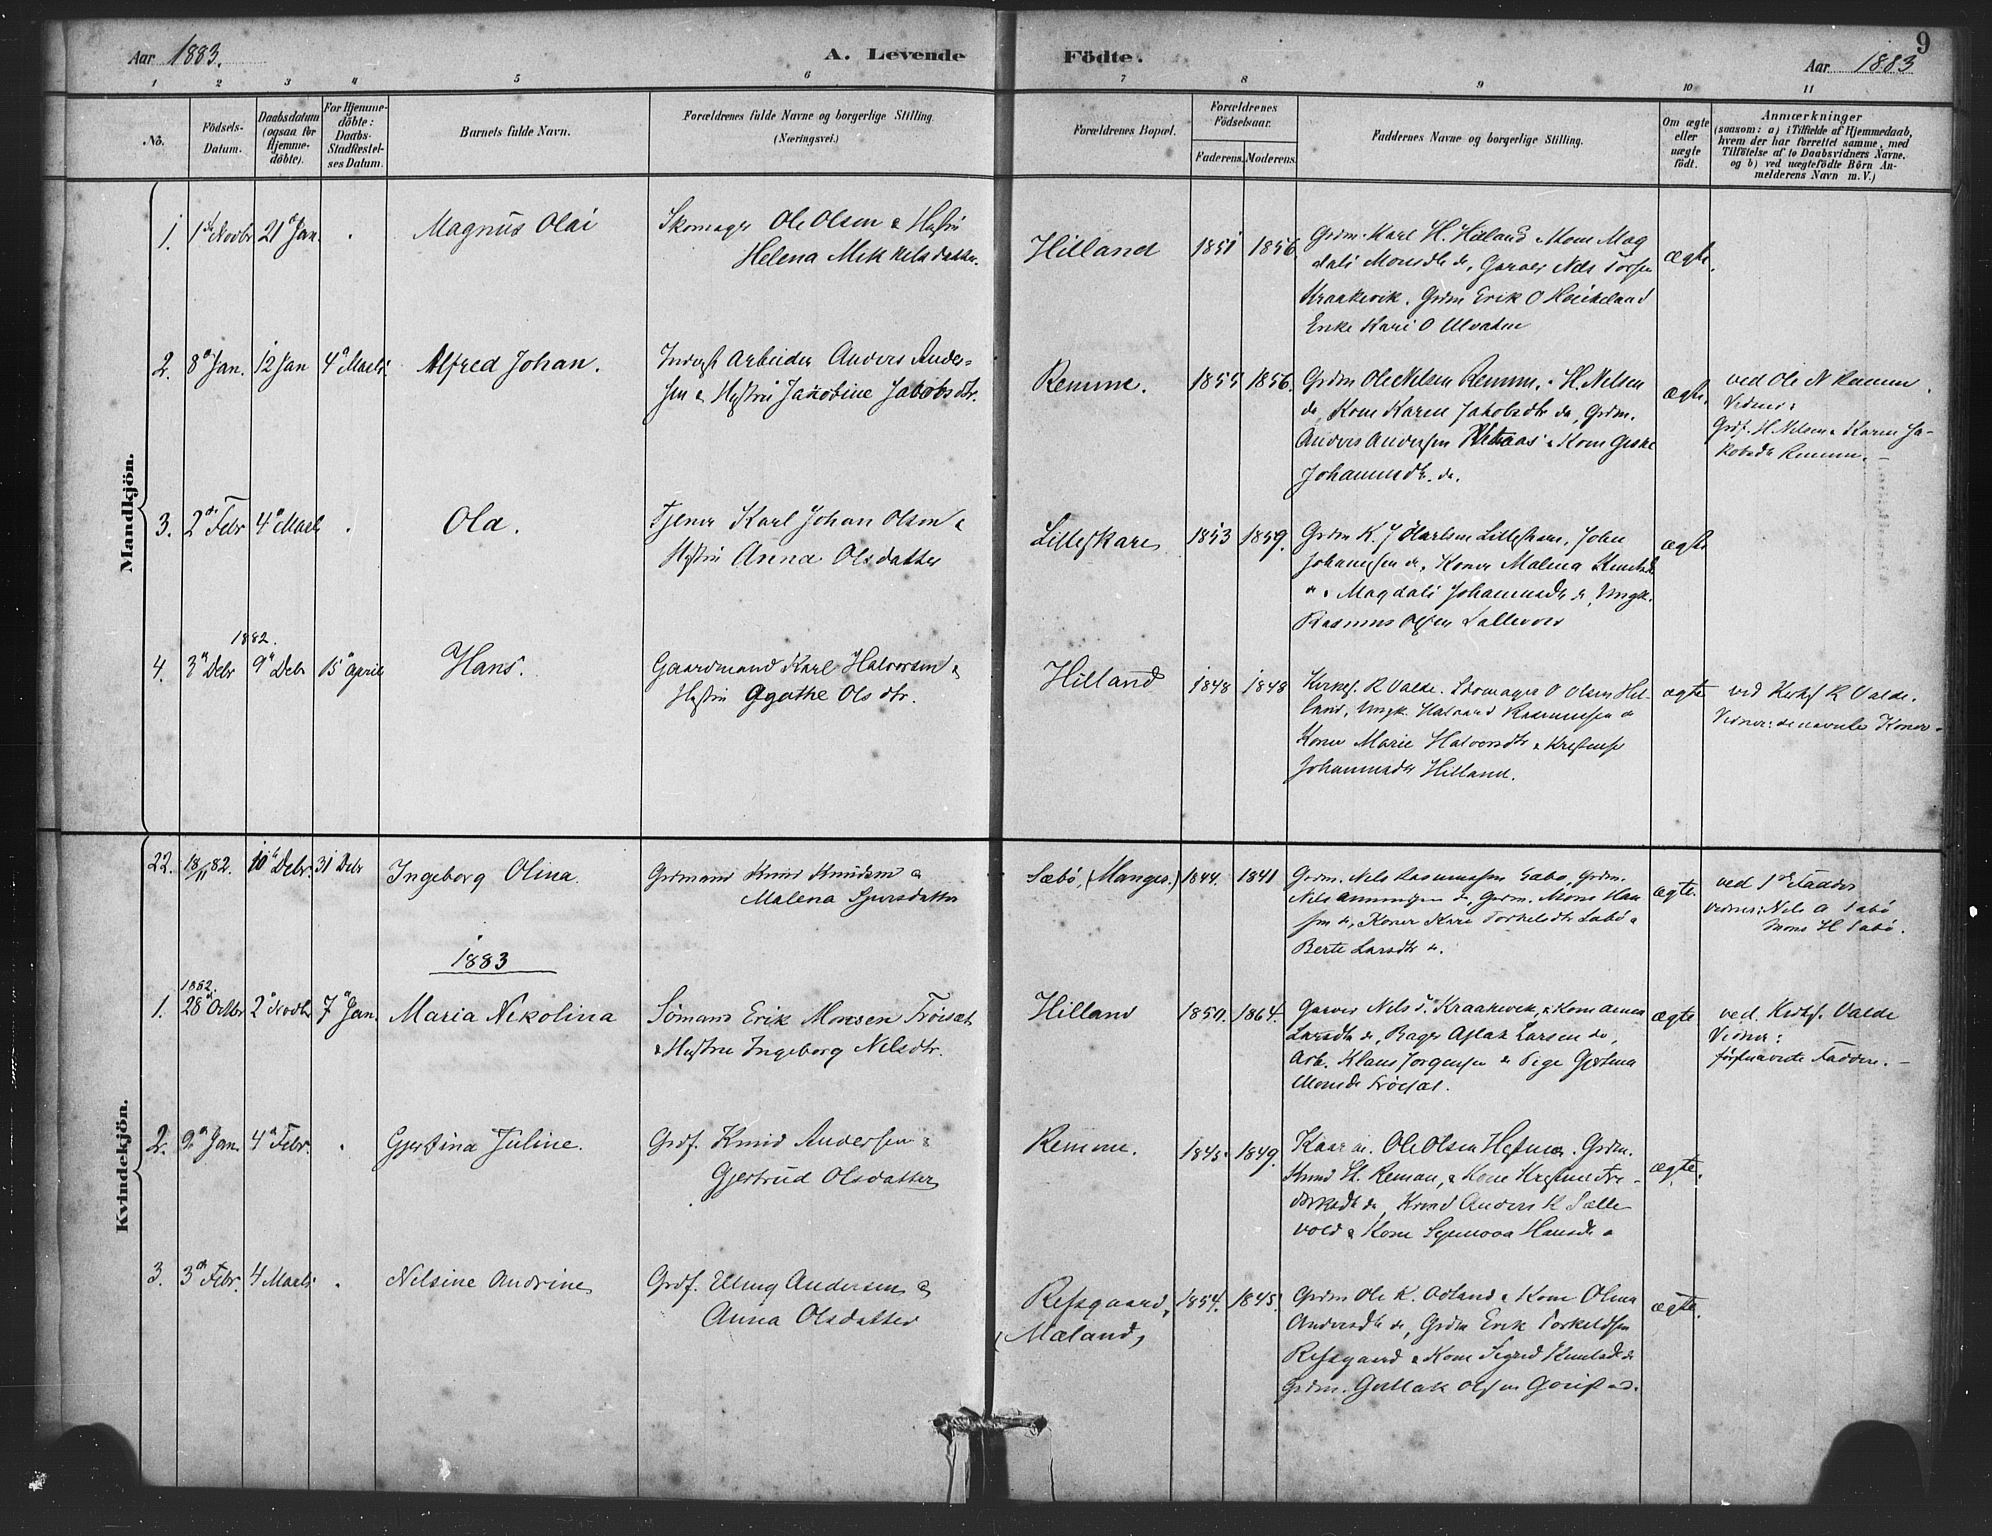 Aar 1883. A. Levende Födte. Aar 1883
9
1 2 3 4 5 6 7 8 9 10 11
No. Födsels-Datum. Daabsdatum (ogsaa for Hjemmedöbte). For Hjemmedöbte: Daabs-Stadfestelses Datum. Barnets fulde Navn. Forældrenes fulde Navne og borgerlige Stilling. (Næringsvei.) Forældrenes Bopæl. Forældrenes Födselsaar. Faderens. Moderens. Faddernes Navne og borgerlige Stilling. Om ægte eller uægte födt. Anmærkninger (saasom: a) i Tilfælde af Hjemmedaab, hvem der har forrettet samme, med Tilföielse af to Daabsvidners Navne. og b) ved uægtefödte Börn Anmelderens Navn m. V.)
Mandkjön.
1. 1 Novbr 21 Jan. Magnus Olai Skomager Ole Olsen & Hustru
Helena Mikkelsdatter.
Hilland 1851 1856 ægte.
Grdm. Karl H. Hilland Kone Mag
dali Monsdtr do, Garver Nels Torsen
Kraakevik. Grdm Erik O
Enke Kari O
2. 8 Jan. 12 Jan 4 Marts. Alfred Johan. Arbeider Anders Ander-
sen & Hustru Jakobine Jakobsdtr.
Remme. 1855 1856. ægte.
Grdm Ole Nelsen Remm. H. Nelsen
do, Kone Karen Jakobsdtr do, Grdm.
Anders Andersen & Kone
Johannesdtr. do.
ved Ole N Remm.
Vidner:
Grdf. H. Nelsen & Karen Ja-
kobsdtr Remm.
3. 2 Febr 4 Marts Ola. Tjener Karl Johan Olsen &
Hustru Anna Olsdatter
Lilleskare 1853 1859. ægte
Grdm K. J. Karlsen Lilleskare, John
Johannesen do, Koner Malena Knutsdtr
Magdali Johannesdtr do, Ungk.
Rasmus Olsen
4. 1882. 3 Debr 9 Debr 15 April Hans. Gaardmand Karl Halvorsen &
Hustru Agathe Olsdtr.
Hilland 1848 1848 ægte
Kirkes. R Valde. Skomager O Olsen Hil-
land, Ungk. Rasmussen
Koner Marie Halvorsdtr &
Johannesdtr Hilland.
ved Kirkes. R Valde.
Vidner: de nævnte Koner
Kvindekjön.
22. 18/11 82. 10 Debr. 31 Debr Ingeborg Olina. Grdmand Knud Knudsen &
Malena Sjursdatter
Sæbö, (Manger.) 1844. 1841 ægte.
Grdm. Nels Rasmussen Sabo, Grdm.
Nels do, Grdm. Mons Han
sen do, Koner Kari Torkelsdtr Sabö &
Berte Larsdtr
ved 1 Fadder
Vidner: Nels A Sabö
Mons H Sabö.
1883
1. 1882. 28 Oktbr 2 Novbr 7 Jan. Maria Nikolina Sömand Erik Monsen Tröisæt
& Hustru Ingeborg Nelsdtr.
Hilland 1850. 1864. ægte
Garver Nels T. Kraakevik, & Kone Anna
Larsdtr do, Bager Aslak Larsen do,
Arb. Klaus Jorgensen & Pige Gjertina
Monsdtr Tröisæt.
ved Kirkes. Valde
Vidner:
förstnævnte Faddere.
2. 9 Jan. 4 Febr. Gjertina Juline. Grdf. Knud Andersen &
Gjertrud Olsdatter
Remme. 1845. 1849. ægte.
Ole Olsen Grdm.
Knud Remme, & Kone
do, Anders K Sælle
vold & Kone Synnova Hansdtr
3. 3 Febr. 4 Marts. Nelsine Andrine Grdf. Elling Andersen &
Anna Olsdatter
Refsgaard,
(Mæland, 1854. 1845. ægte.
Grdm Ole K. Odland & Kone Olina
Andersdtr do, Grdm Erik Torkelsen
Refsgaard & Kone Sigrid Knutsdtr do
Grdm. Olsen